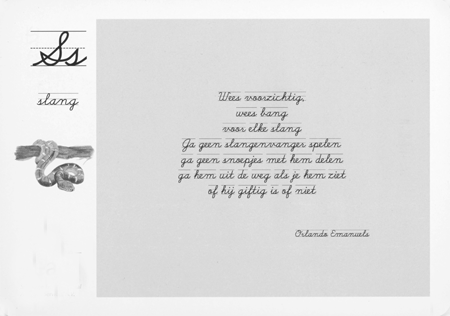 Ss
slang
Wees voorzichtig,
wees bang
voor elke slang
Ga geen slangenvanger spelen
ga geen snoepjes met hem delen
ga hem uit de weg als je hem ziet
of hij giftig is of niet
Orlando Emanuels